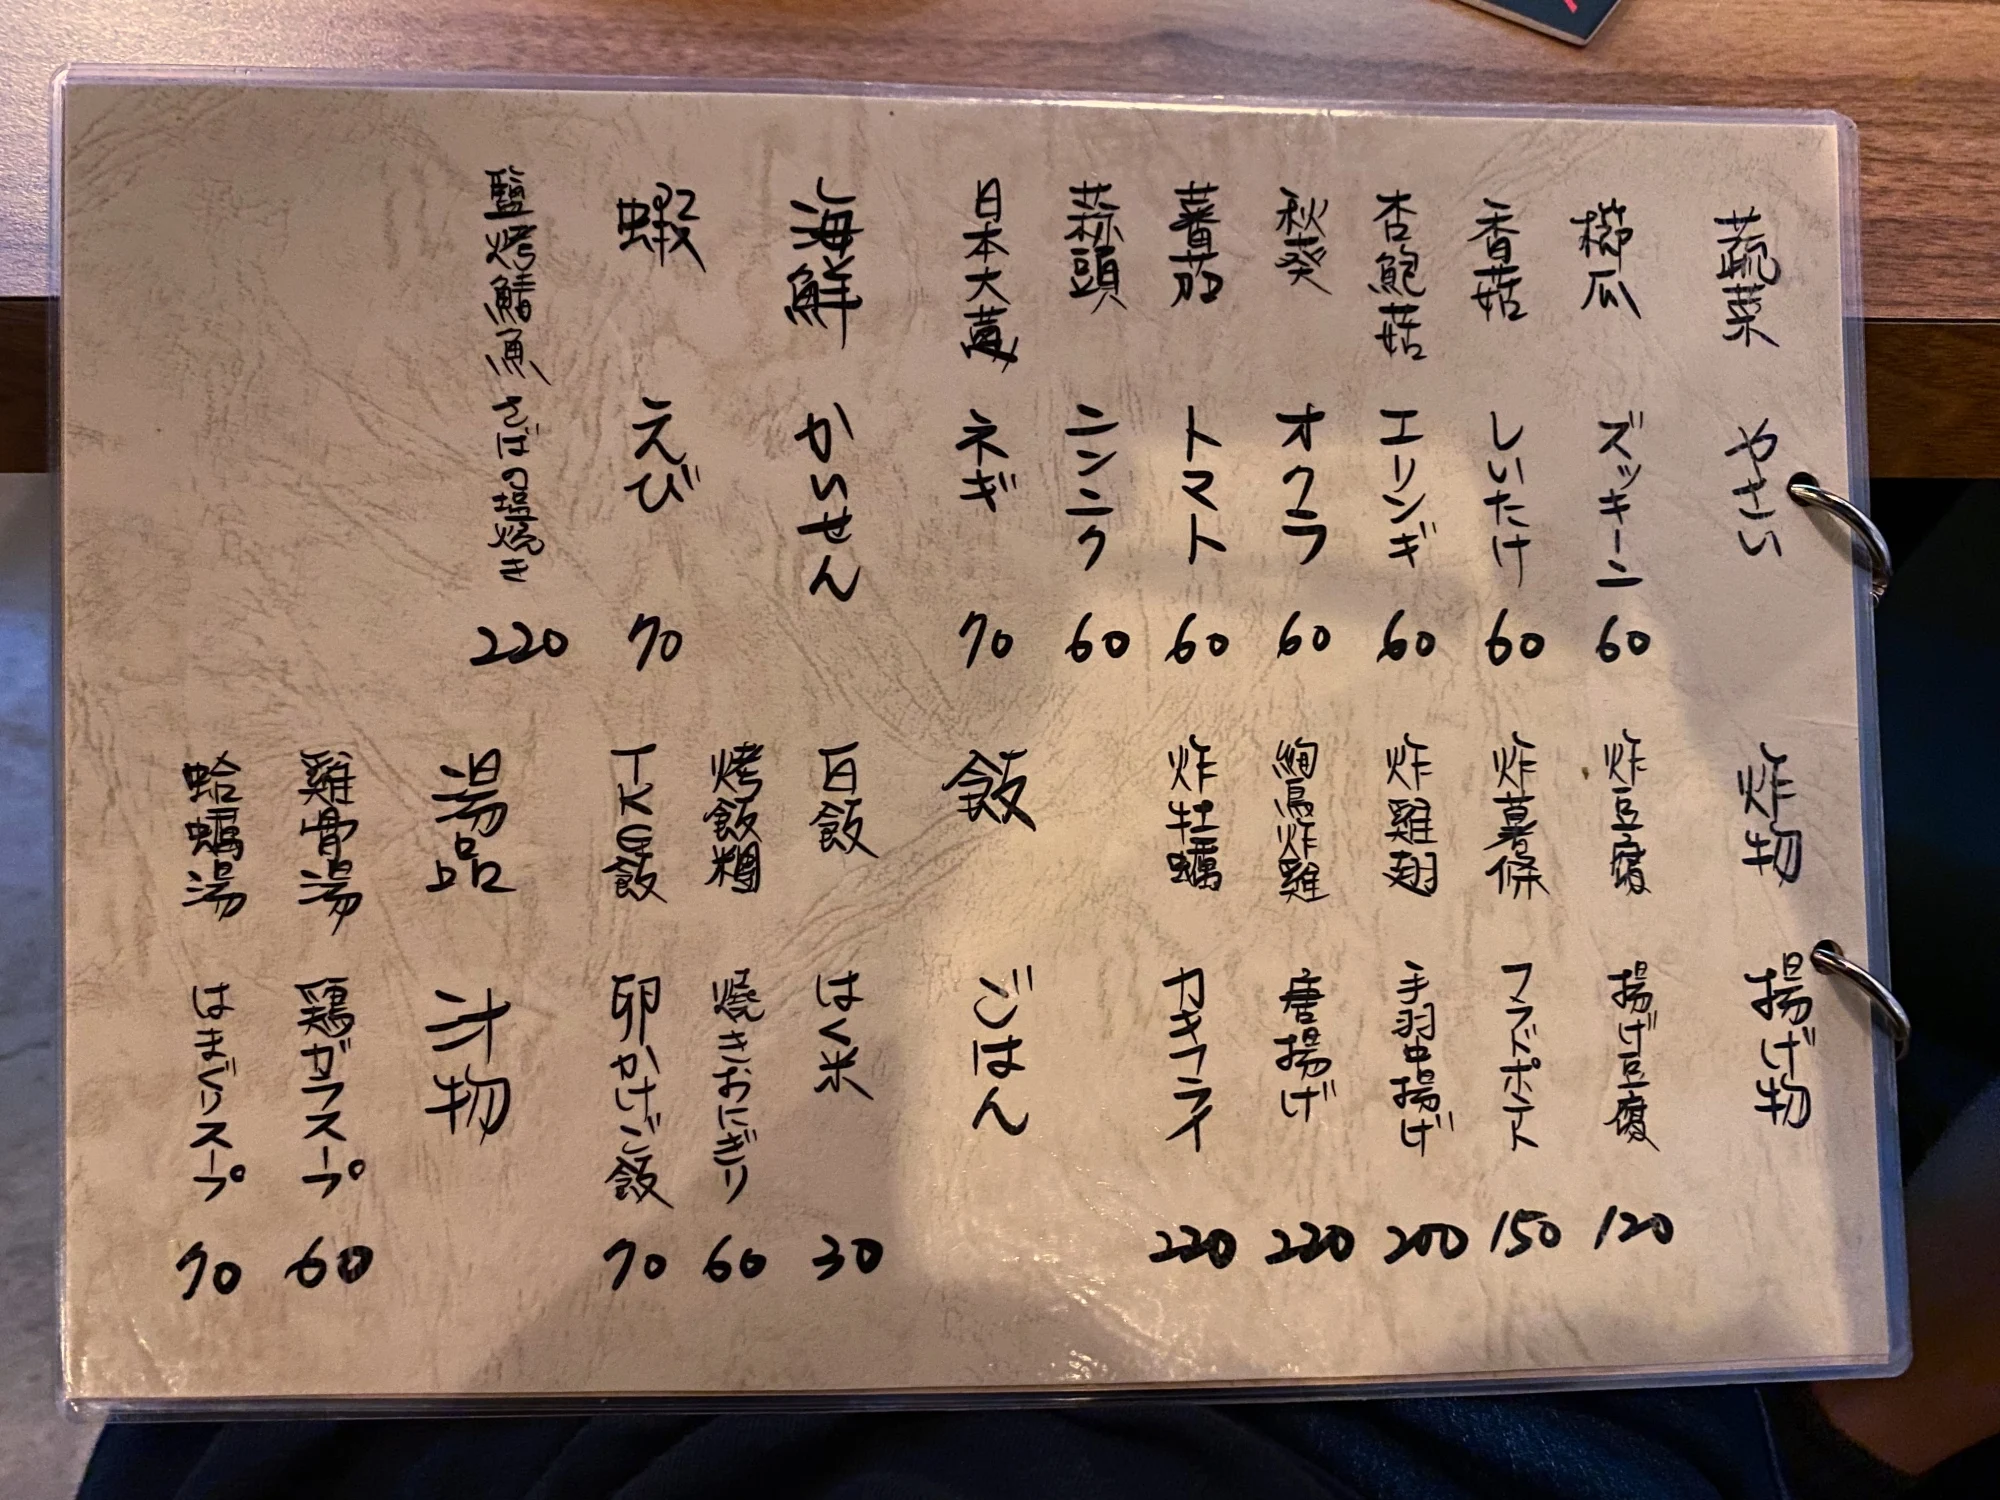 蔬菜 やさい
櫛瓜 ズッキーニ 60
香菇 しいたけ 60
杏鮑菇 エリンギ 60
秋葵 オクラ 60
蕃茄 トマト 60
蒜頭 ニンニク 60
日本大蔥 ネギ 70
海鮮 かいせん
蝦 えび 70
鹽烤鯖魚 さばの塩焼き 220
炸物 揚げ物
炸豆腐 揚げ豆腐 120
炸薯條 フラドポテト 150
炸雞翅 手羽中揚げ 200
絢鳥炸雞 唐揚げ 220
炸牡蠣 カキフライ 220
飯 ごはん
白飯 はく米 30
烤飯糰 焼きおにぎり 60
TKG飯 卵かけご飯 70
湯品 汁物
雞骨湯 鶏ガラスープ 60
蛤蠣湯 はまぐりスープ 70